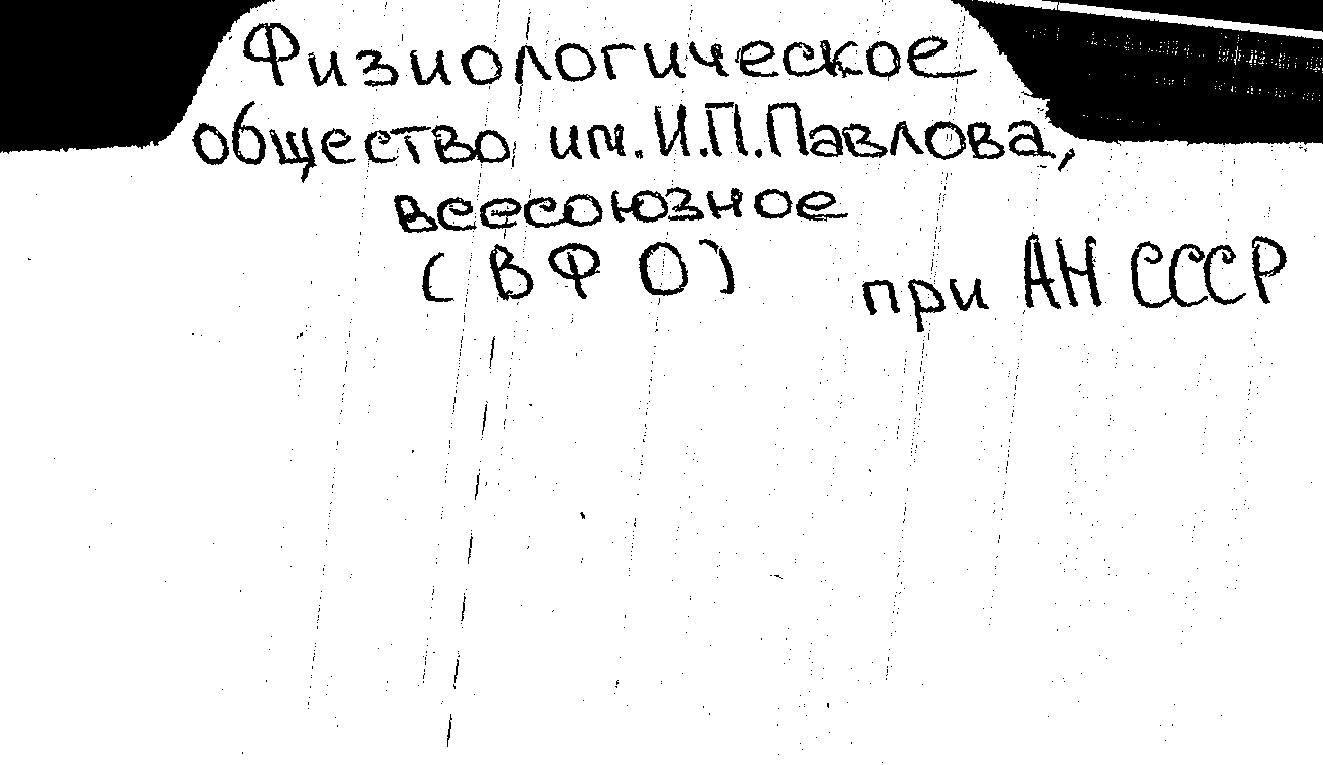 Физиологическое
общество им. И.П.Павлова,
всесоюзное
(ВФО) при АН СССР